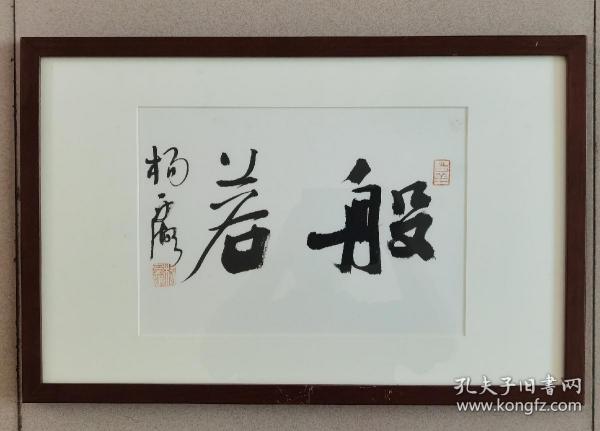 般若
杨
孔夫子旧書网
www.kongfz.com